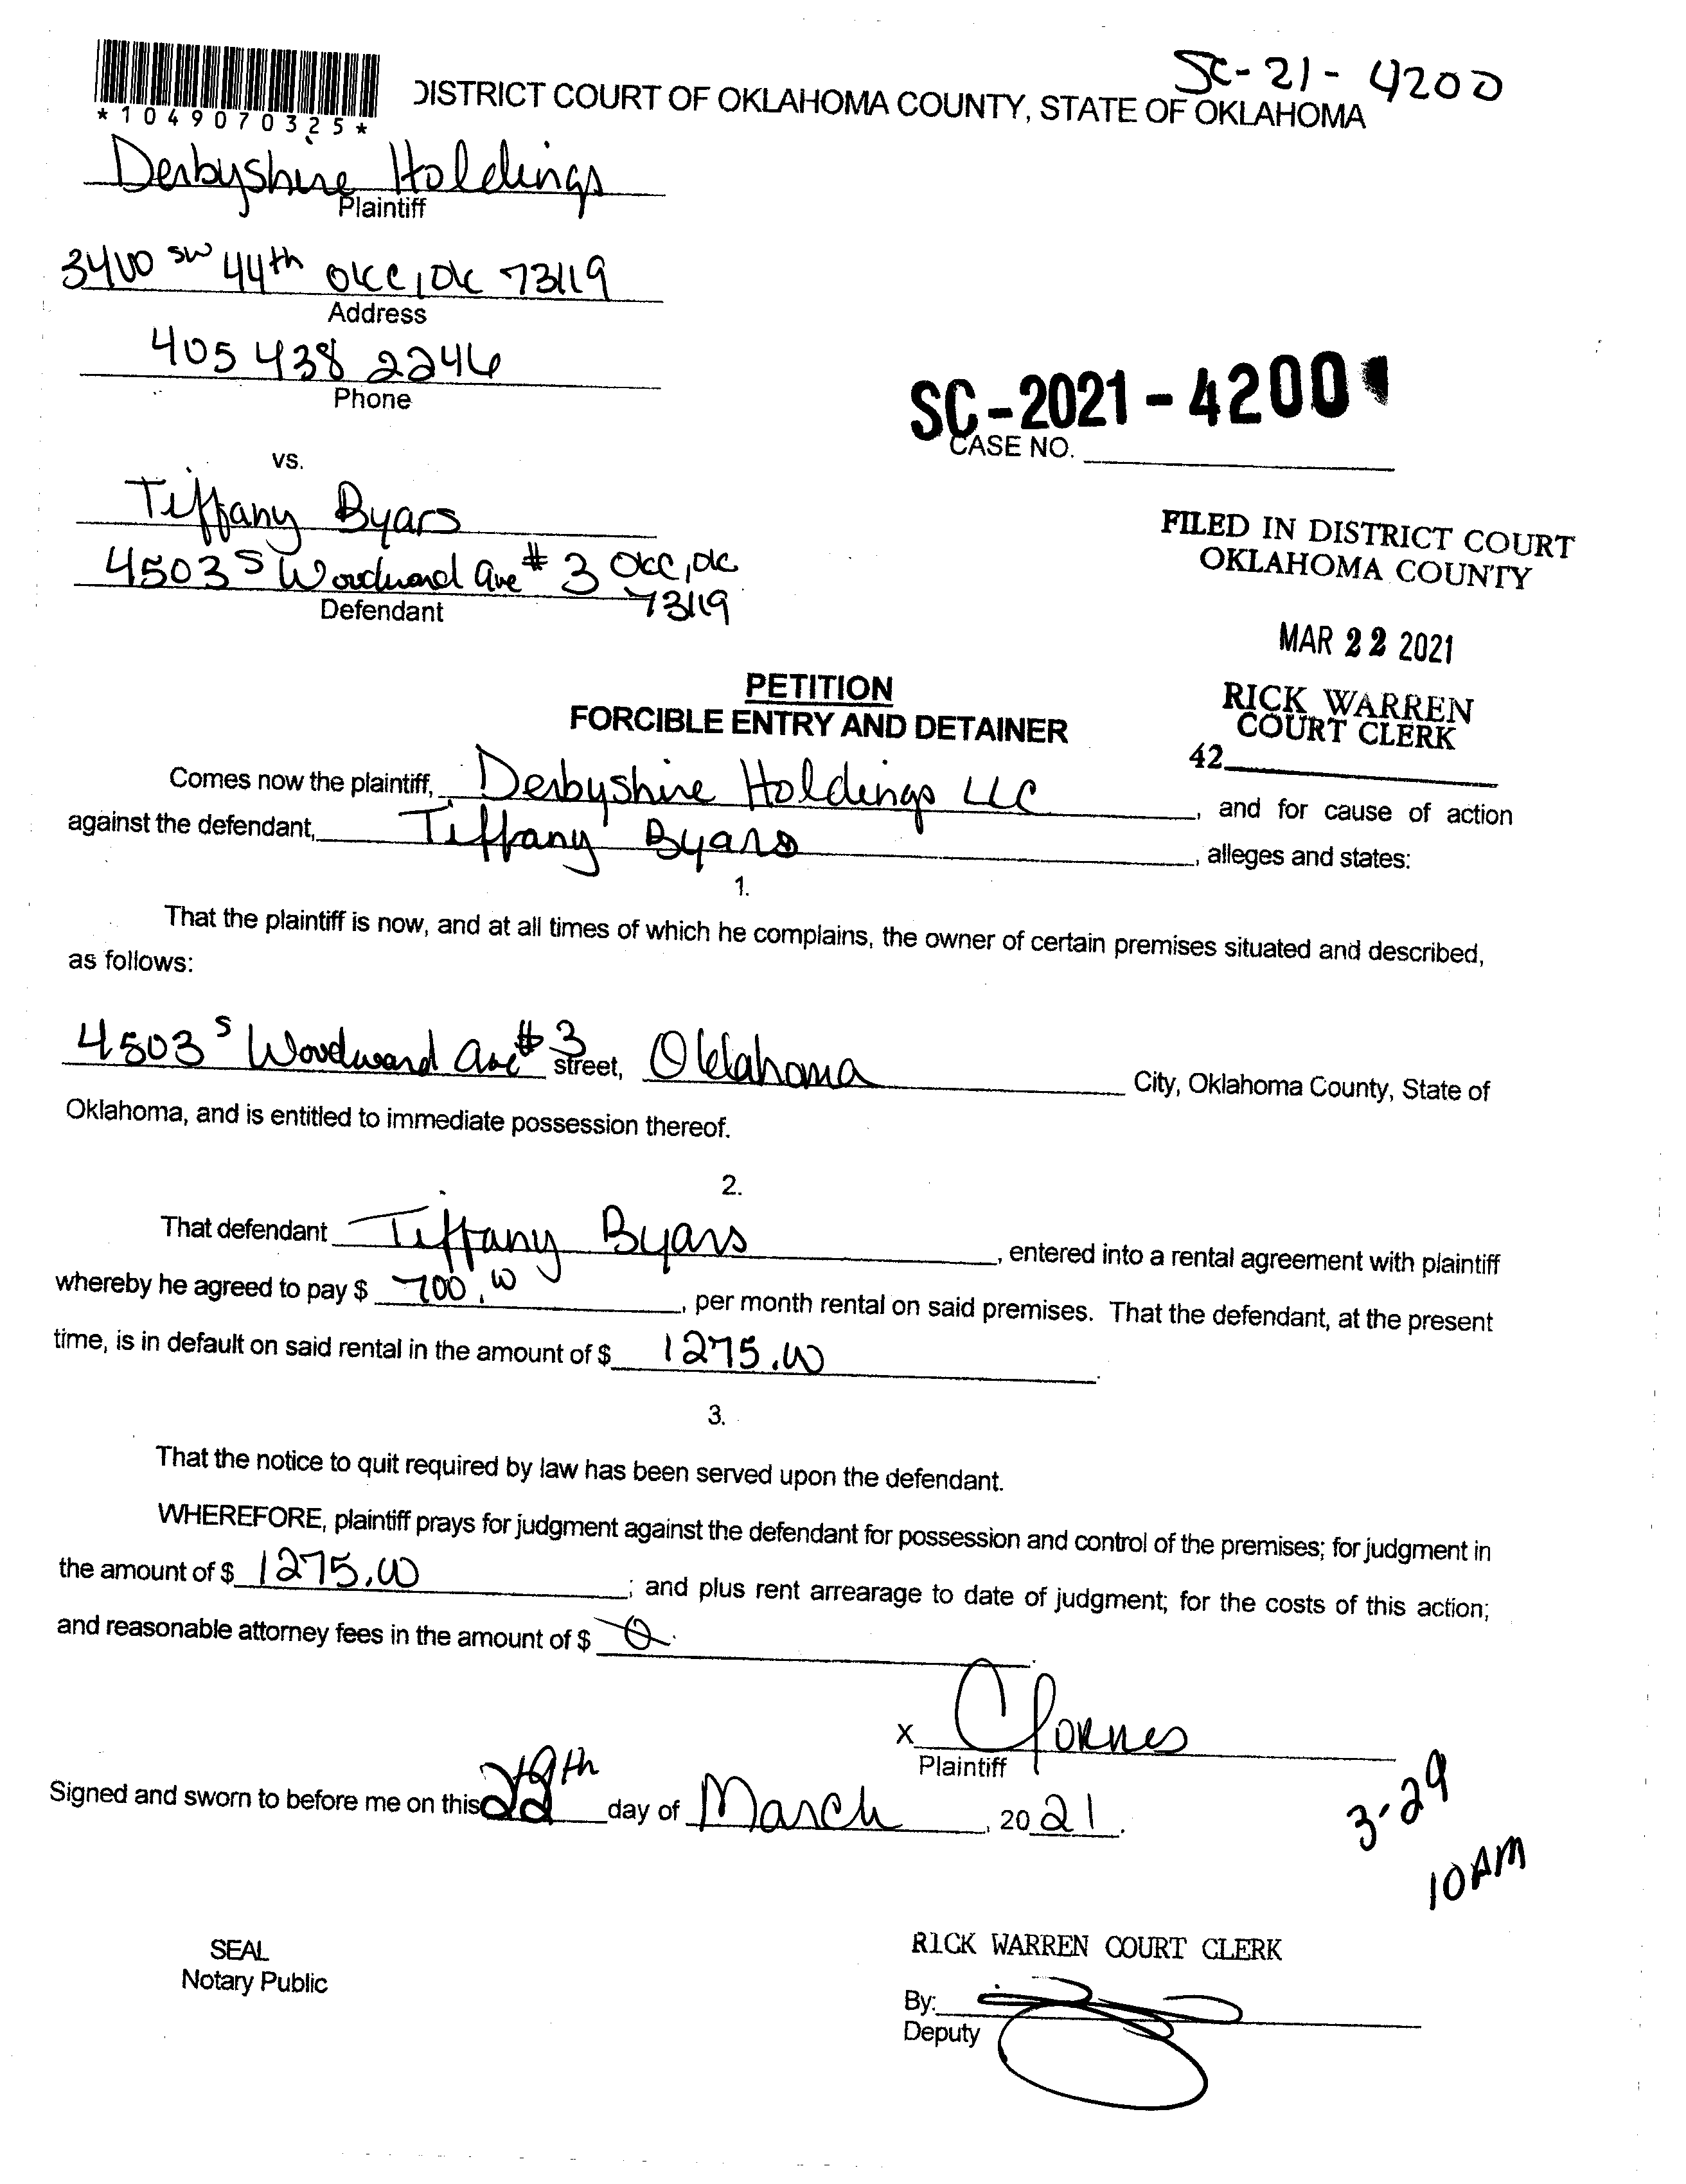 SC-21-4200
*1049070325*
DISTRICT COURT OF OKLAHOMA COUNTY, STATE OF OKLAHOMA
Derbyshire Holdings
Plaintiff
3400 SW 44th OKC, OK 73119
Address
405 438 2246
Phone
SC-2021-4200
CASE NO.
vs.
Tiffany Byars
4503 S Woodward Ave #3 OKC, OK
73119
Defendant
FILED IN DISTRICT COURT
OKLAHOMA COUNTY
MAR 22 2021
RICK WARREN
COURT CLERK
42
PETITION
FORCIBLE ENTRY AND DETAINER
Comes now the plaintiff, Derbyshire Holdings LLC, and for cause of action
against the defendant, Tiffany Byars, alleges and states:
1.
That the plaintiff is now, and at all times of which he complains, the owner of certain premises situated and described,
as follows:
4503 S Woodward Ave #3 street, Oklahoma City, Oklahoma County, State of
Oklahoma, and is entitled to immediate possession thereof.
2.
That defendant Tiffany Byars, entered into a rental agreement with plaintiff
whereby he agreed to pay $ 700.00, per month rental on said premises. That the defendant, at the present
time, is in default on said rental in the amount of $ 1275.00.
3.
That the notice to quit required by law has been served upon the defendant.
WHEREFORE, plaintiff prays for judgment against the defendant for possession and control of the premises; for judgment in
the amount of $ 1275.00; and plus rent arrearage to date of judgment; for the costs of this action;
and reasonable attorney fees in the amount of $ 0.
X
Plaintiff
Signed and sworn to before me on this 22 th day of March, 2021.
3-29
10AM
SEAL
Notary Public
RICK WARREN COURT CLERK
By:
Deputy